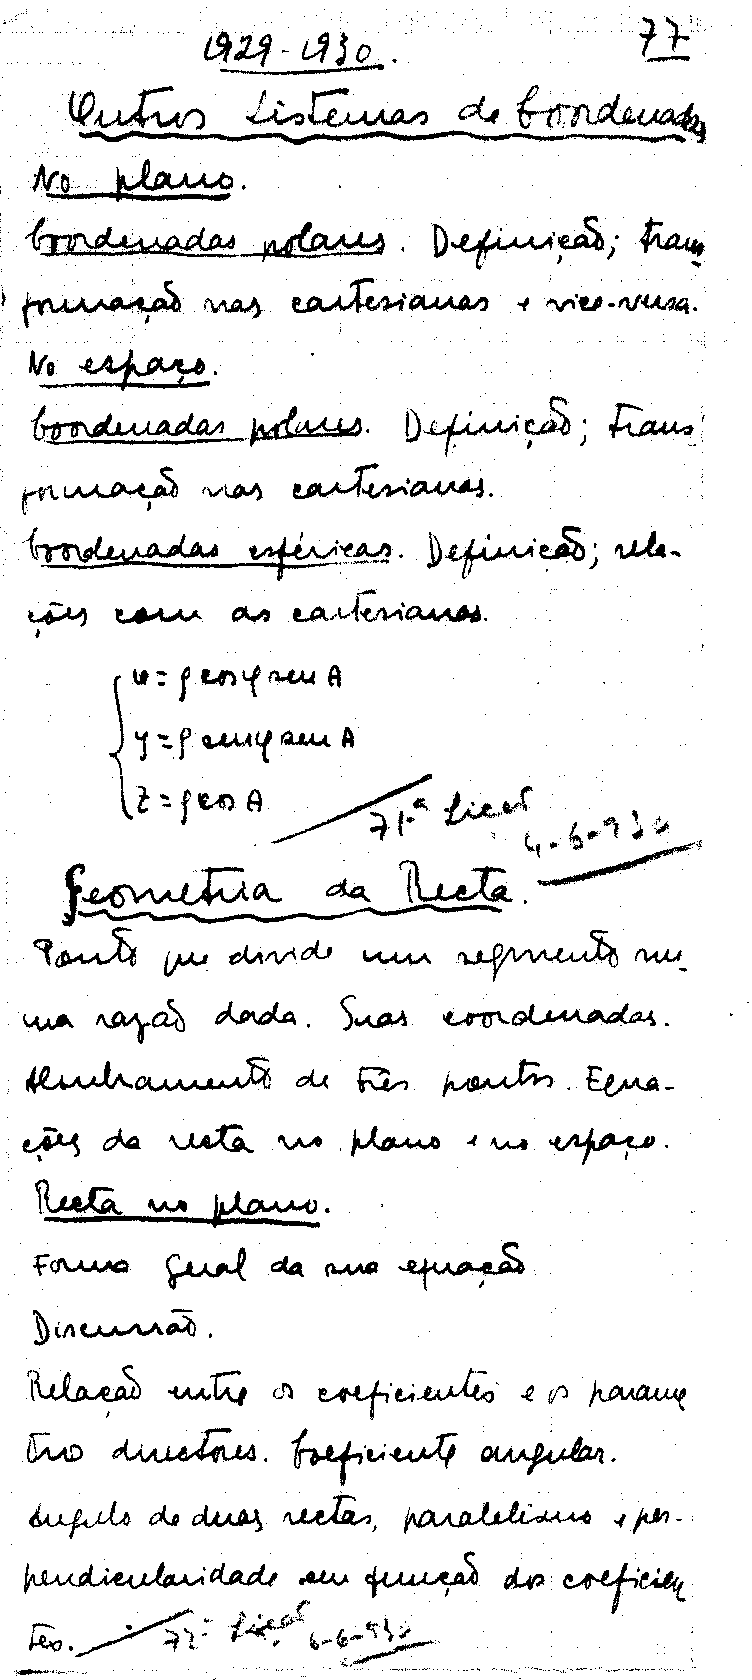 1929-1930.
77
Outros Sistemas de Coordenadas
No plano.
Coordenadas polares. Definição; trans-
formação nas cartesianas e vice-versa.
No espaço.
Coordenadas polares. Definição; trans
formação nas cartesianas.
Coordenadas esféricas. Definição; rela-
ções com as cartesianas.
x = ρ cos φ sen A
y = ρ sen φ sen A
z = ρ cos A
71.ª Lição
4-6-930
Geometria da Recta.
Ponto que divide um segmento nu-
ma razão dada. Suas coordenadas.
Alinhamento de três pontos. Equa-
ções da recta no plano e no espaço.
Recta no plano.
Forma geral da sua equação
Discussão.
Relação entre os coeficientes e os parame
tros directores. Coeficiente angular.
Angulo de duas rectas, paralelismo e per-
pendicularidade em função dos coeficien
tes.
72.ª Lição. 6-6-930